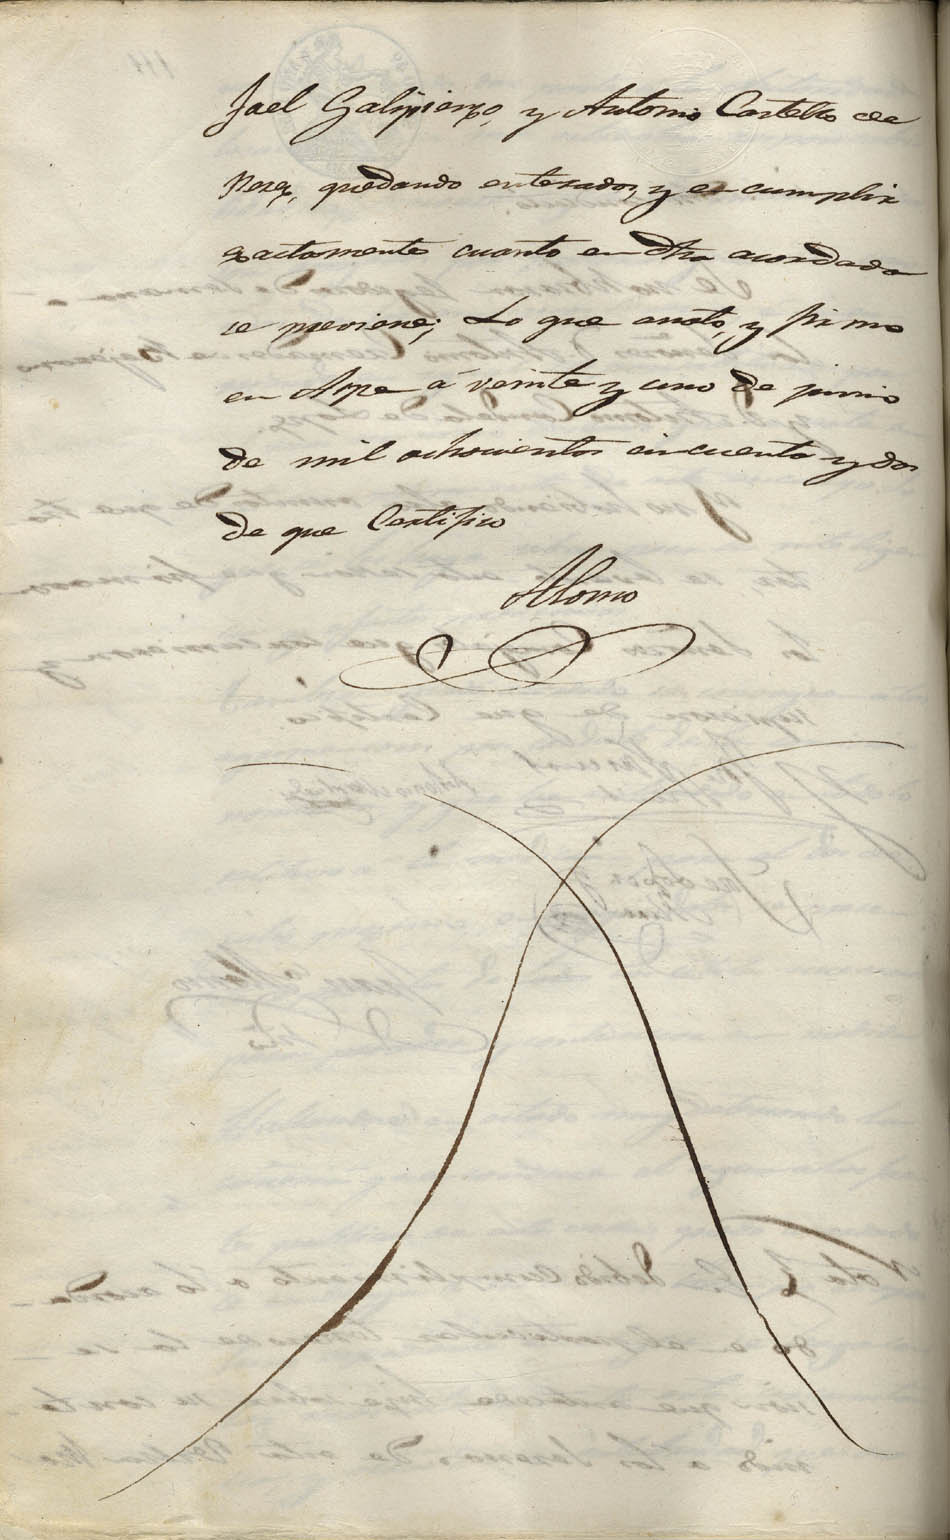 fael Galipienzo, y Antonio Castello de
Perez, quedando enterados, y en cumplir
exactamente cuanto en dha acordada
se previene; Lo que anoto, y firmo
en Aspe á veinte y uno de junio
de mil ochocientos cincuenta y dos
de que Certifico
Alonso